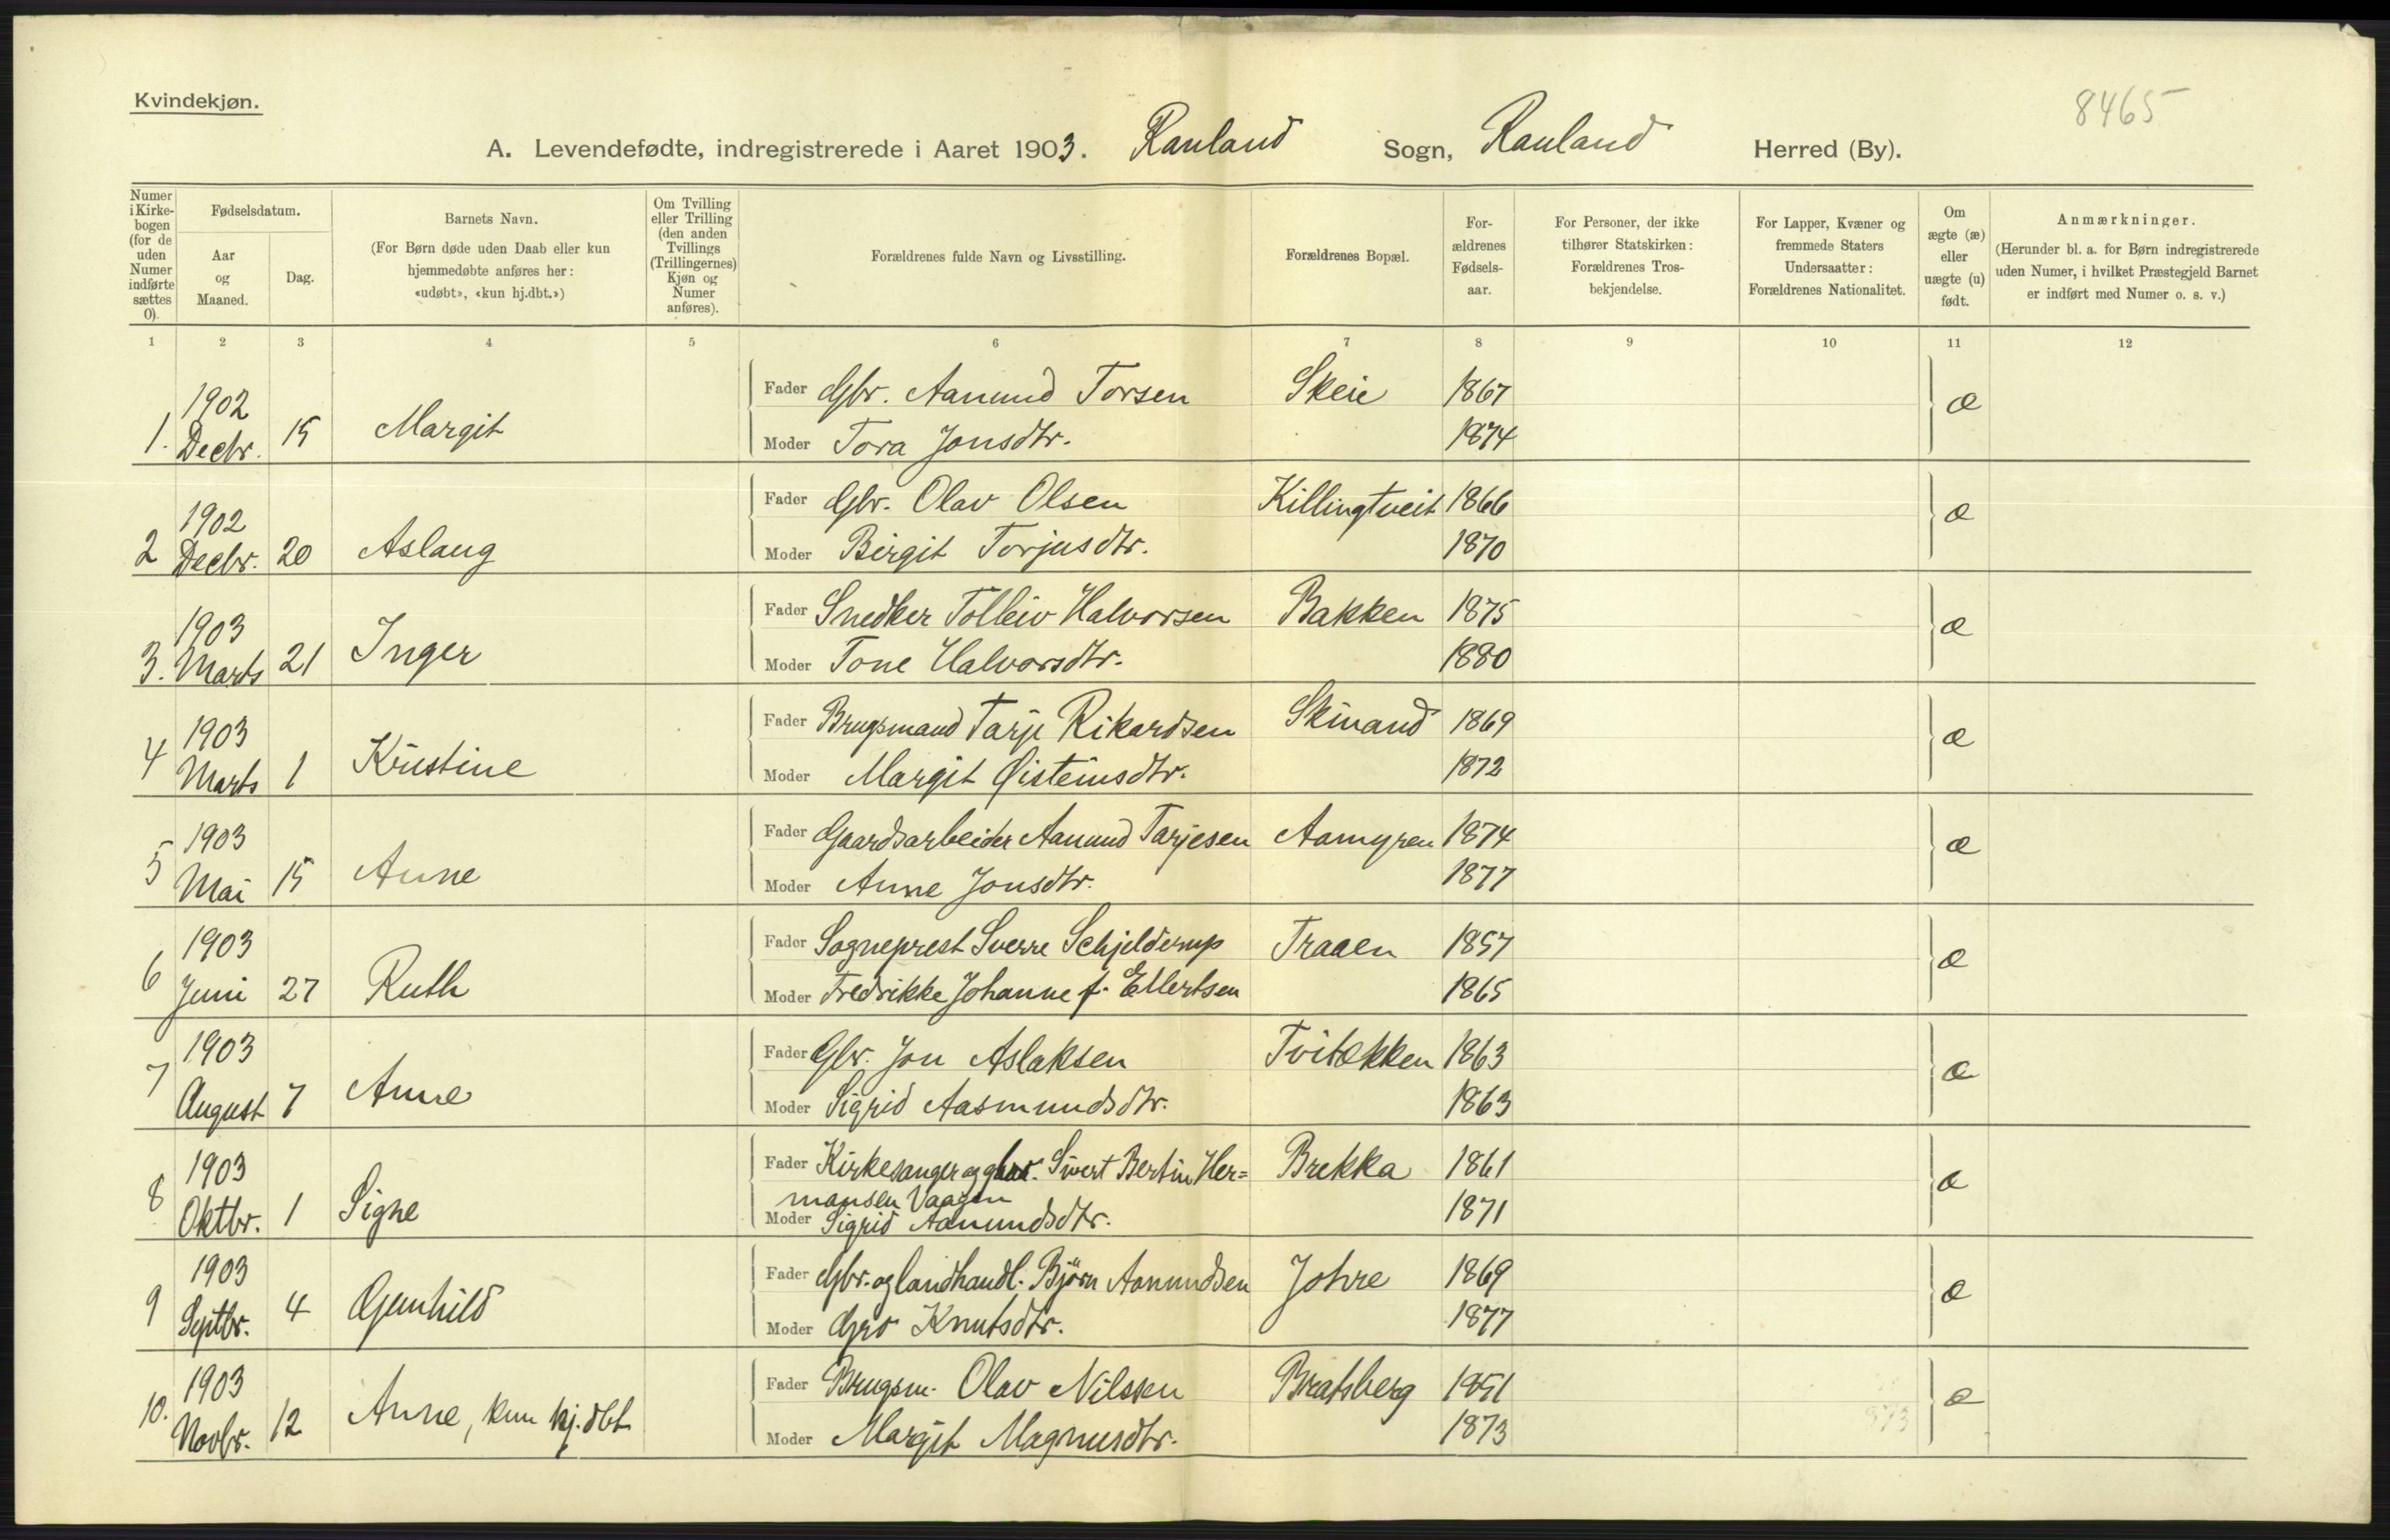 Kvindekjøn.
8465
A. Levendefødte, indregistrerede i Aaret 1903. Rauland Sogn, Rauland Herred (By).
Numer i Kirkebogen (for de uden Numer indførte sættes 0).
Fødselsdatum.
Aar og Maaned.
Dag.
Barnets Navn.
(For Børn døde uden Daab eller kun hjemmedøbte anføres her: «udøbt», «kun hj.dbt.»)
Om Tvilling eller Trilling (den anden Tvillings (Trillingernes) Kjøn og Numer anføres).
Forældrenes fulde Navn og Livsstilling.
Forældrenes Bopæl.
Forældrenes Fødselsaar.
For Personer, der ikke tilhører Statskirken: Forældrenes Trosbekjendelse.
For Lapper, Kvæner og fremmede Staters Undersaatter: Forældrenes Nationalitet.
Om ægte (æ) eller uægte (u) født.
Anmærkninger.
(Herunder bl. a. for Børn indregistrerede uden Numer, i hvilket Præstegjeld Barnet er indført med Numer o. s. v.)
1 2 3 4 5 6 7 8 9 10 11 12
1. 1902 Decbr. 15 Margit Fader Gbr. Aamund Torsen Skeie 1867 æ
Moder Tora Jonsdtr. 1874
2 1902 Decbr. 20 Aslaug Fader Gbr. Olav Olsen Killingtveit 1866 æ
Moder Birgit Torjusdtr. 1870
3. 1903 Marts 21 Inger Fader Snedker Tolleiv Halvorsen Bakken 1875 æ
Moder Tone Halvorsdtr. 1880
4 1903 Marts 1 Kristine Fader Brugsmand Tarje Rikardsen Skinand 1869 æ
Moder Margit Øisteinsdtr. 1872
5 1903 Mai 15 Anne Fader Gaardsarbeider Aamund Tarjesen Aamyren 1874 æ
Moder Anne Jonsdtr. 1877
6 1903 Juni 27 Ruth Fader Sogneprest Sverre Schjelderup Traaen 1857 æ
Moder Fredrikke Johanne f. Ellertsen 1865
7 1903 August 7 Anne Fader Gbr. Jon Aslaksen Tvitækken 1863 æ
Moder Sigrid Aasmundsdtr. 1863
8 1903 Oktbr. 1 Signe Fader Kirkesanger og gbr. Sivert Bertin Her= Brekka 1861 æ
mansen Vaagen
Moder Sigrid Aamundsdtr. 1871
9 1903 Septbr. 4 Gunhild Fader Gbr. og landhandl. Björn Aamundsen Johre 1869 æ
Moder Gro Knutsdtr. 1877
10. 1903 Novbr. 12 Anne, kun hj.dbt Fader Brugsm. Olav Nilssen Bratsberg 1851 æ
Moder Margit Magnusdtr. 1873